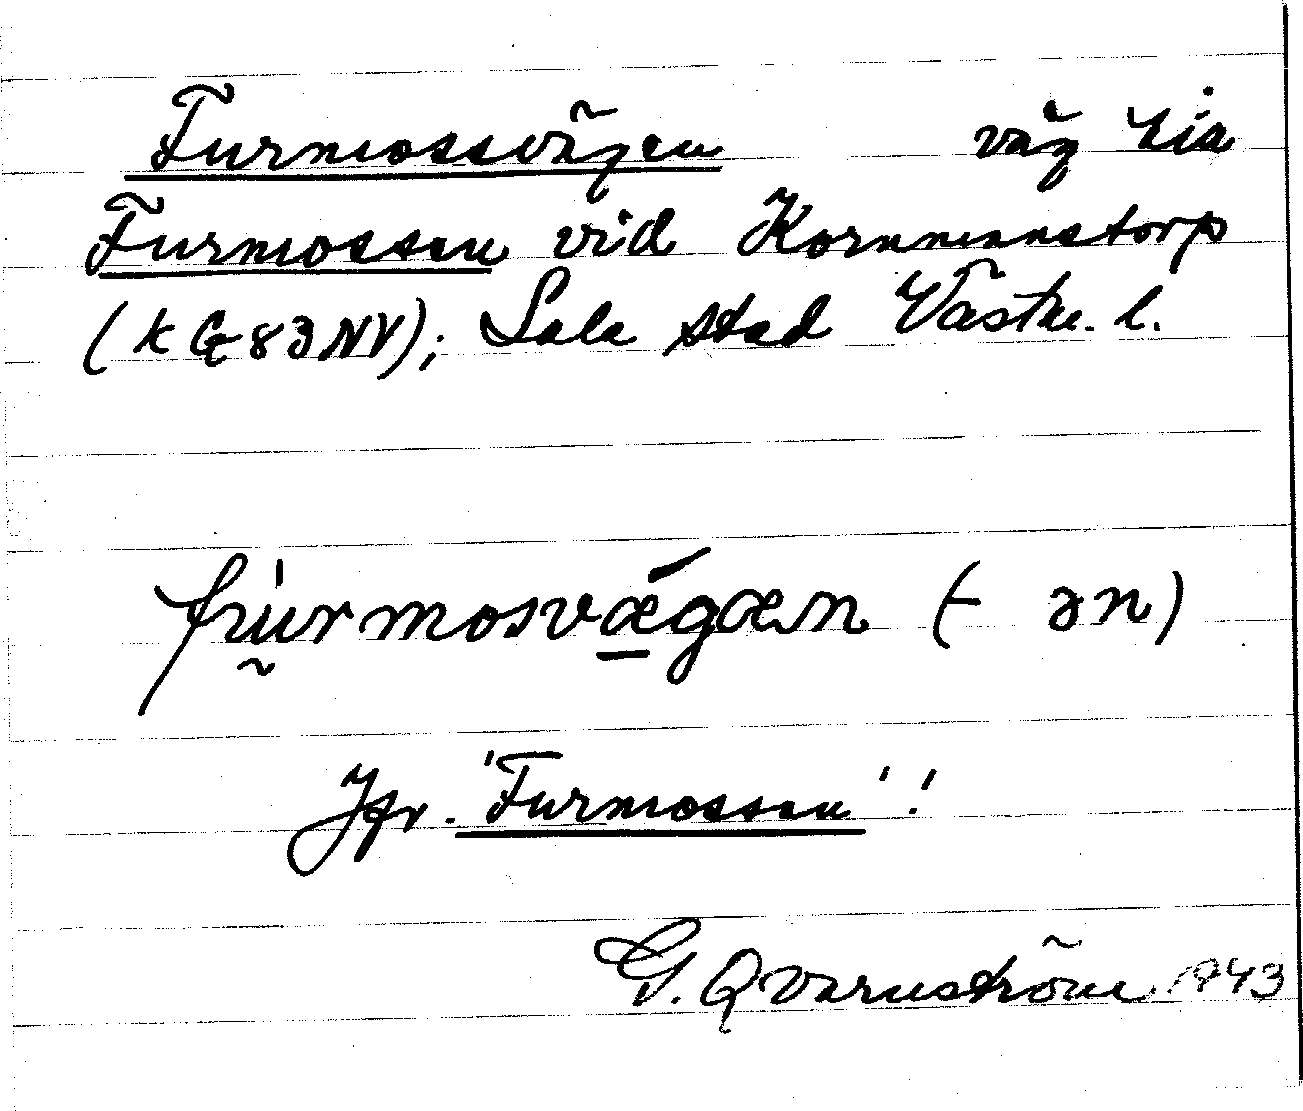 Furmossvägen väg via
Furmossen vid Kornmennstorp
(k G 83 NV); Sala stad Västm. l.
fṵrmosvǽgæn (- ən)
Jfr. 'Furmossen'!
G. Qvarnström 1943